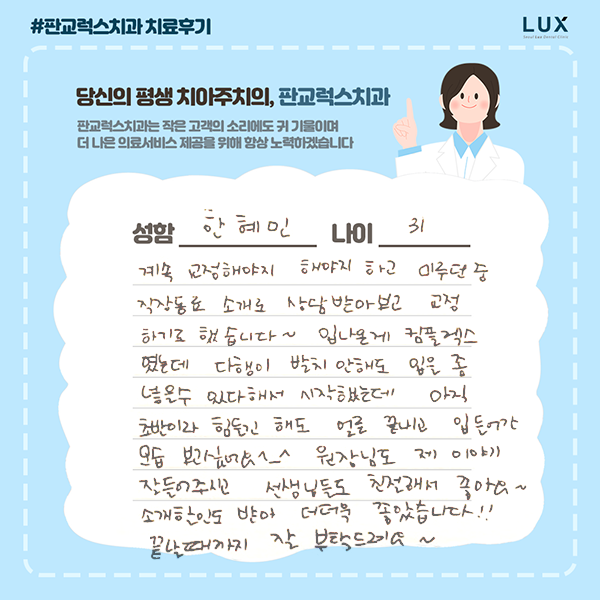 #판교럭스치과 치료후기
LUX
Seoul Lux Dental Clinic
당신의 평생 치아주치의, 판교럭스치과
판교럭스치과는 작은 고객의 소리에도 귀 기울이며
더 나은 의료서비스 제공을 위해 항상 노력하겠습니다
성함 한혜민 나이 31
계속 교정해야지 해야지 하고 미루던 중
직장동료 소개로 상담받아보고 교정
하기로 했습니다~ 입나온게 컴플렉스
였는데 다행이 발치 안해도 입을 좀
넣을수 있다해서 시작했는데 아직
초반이라 힘들긴 해도 얼른 끝내고 입들어간
모습 보고싶어요^_^ 원장님도 제 이야기
잘들어주시고 선생님들도 친절해서 좋아요~
소개할인도 받아 더더욱 좋았습니다!!
끝날때까지 잘 부탁드려요~